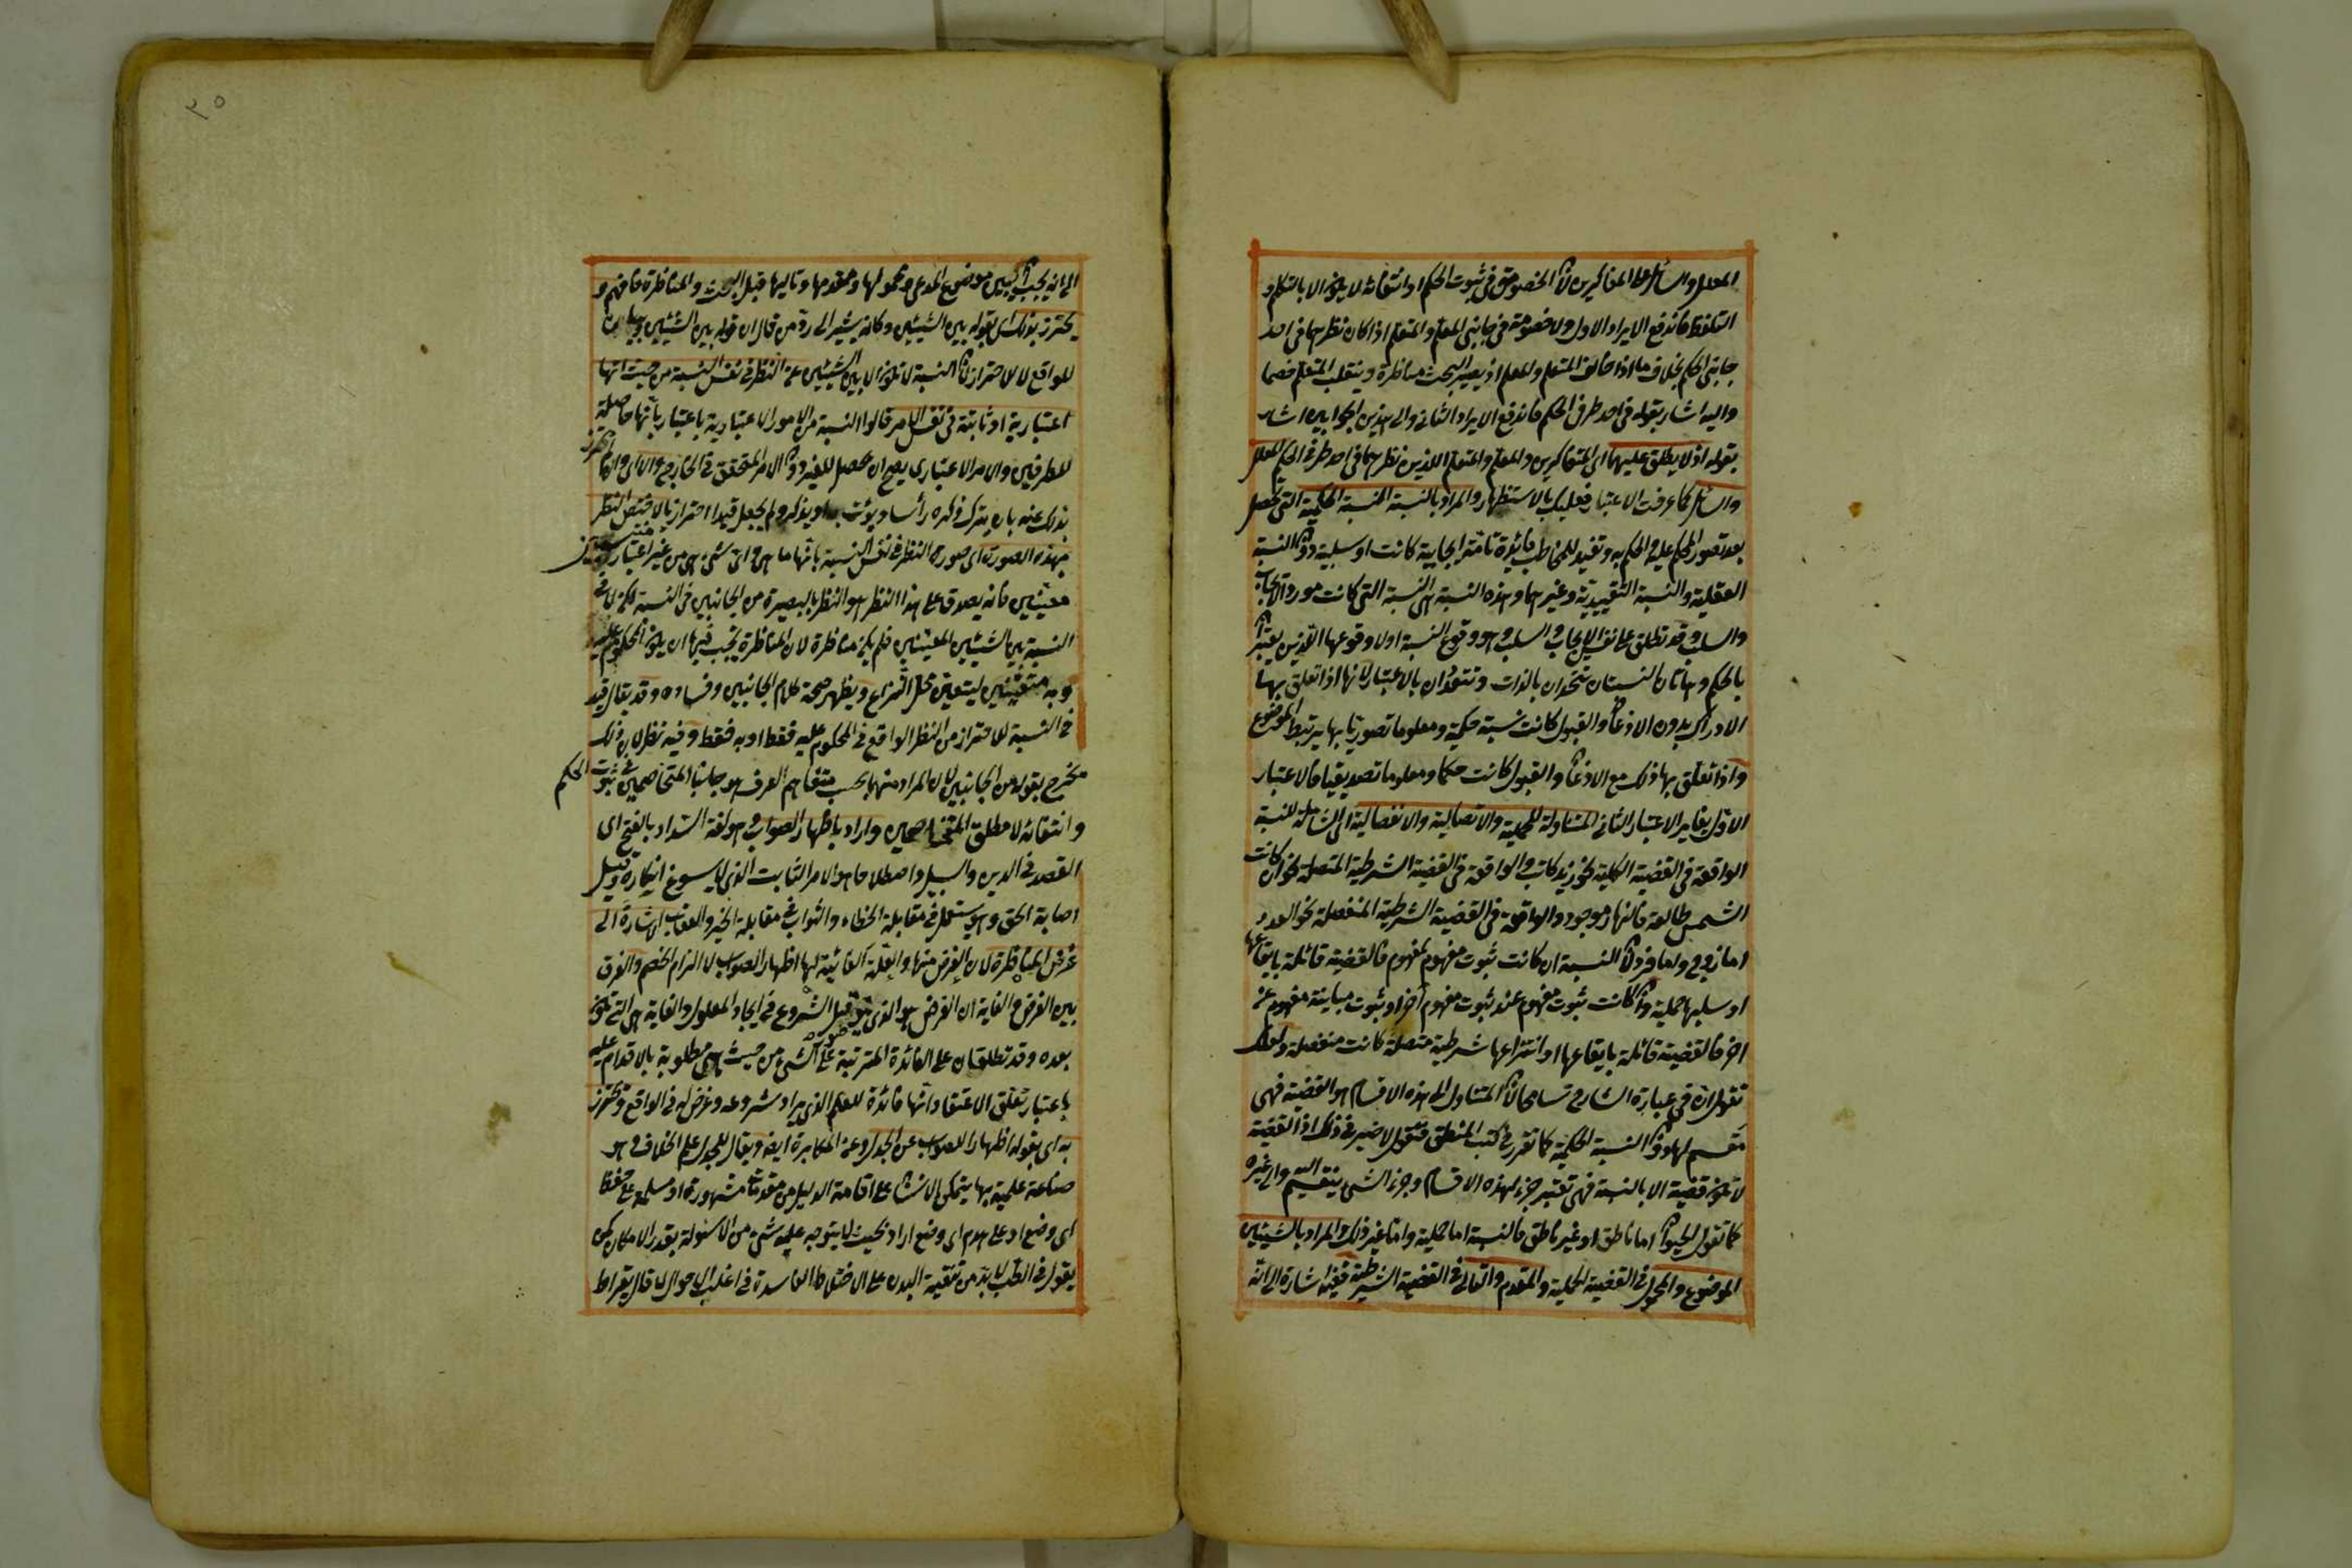 المعلل والسائل على المتفاكرين لان الخصومة في ثبوت الحكم او انتفائه لا يكون الا بالتكلم و
التلفظ فاندفع الايراد الاول ولا خصومة في جانبي المعلم والمتعلم اذا كان نظرهما في احد
جانبي الحكم بخلاف ما اذا خالف المتعلم والمعلم اذ يصير البحث مناظرة وينقلب المتعلم خصما
واليه اشار بقوله في احد طرفي الحكم فاندفع الايراد الثاني والى هذين الجوابين اشار
بقوله اذ لا يطلق عليهما اى المتفاكرين والمعلم والمتعلم اللذين نظرهما في احد طرفي الحكم المعلل
والسائل كما عرفت الاعتبار فعليك بالاستظهار والمراد بالنسبة النسبة الحكمية التي تحصل
بعد تصور المحكوم عليه والمحكوم به وتفيد للمخاطب فائدة تامة ايجابية كانت او سلبية دون النسبة
العقلية والنسبة التقييدية وغيرهما وهذه النسبة هى النسبة التي كانت مورد الايجاب
والسلب وقد تطلق على نفس الايجاب والسلب وهو وقوع النسبة او لا وقوعها اللذين يعبر
بالحكم وهاتان النسبتان تتحدان بالذات وتتعددان بالاعتبار لانها اذا تعلق بها
الادراك بدون الاذعان والقبول كانت نسبة حكمية ومعلوما تصوريا بها يرتبط الموضوع
واذا تعلق بها ذلك مع الاذعان والقبول كانت حكما ومعلوما تصديقيا فالاعتبار
الاول يغاير الاعتبار الثاني المتناولة للحملية والاتصالية والانفصالية اى الشاملة للنسبة
الواقعة في القضية الحملية نحو زيد كاتب والواقعة في القضية الشرطية المتصلة نحو ان كانت
الشمس طالعة فالنهار موجود والواقعة في القضية الشرطية المنفصلة نحو العدد
اما زوج واما فرد لان النسبة ان كانت ثبوت مفهوم لمفهوم فالقضية قائلة بايقاعها
او سلبها حملية وان كانت ثبوت مفهوم عند ثبوت مفهوم آخر او ثبوت مباينة مفهوم عن
اخر فالقضية قائلة بايقاعها او انتزاعها شرطية متصلة كانت منفصلة ولعلك
تقول ان في عبارة الشارح تسامحا لان المتناول الى هذه الاقسام هو القضية فهى
مقسم لها دون النسبة الحكمية كما تقرر في كتب المنطق فنقول لا ضير في ذلك اذ القضية
لا تكون قضية الا بالنسبة فهى تعتبر جزء لهذه الاقسام وجزء الشئ ينقسم اليه والى غيره
كما تقول الحيوان اما ناطق او غير ناطق فالنسبة اما حملية واما غير ذلك والمراد بالشيئين
الموضوع والمحمول في القضية الحملية والمقدم والتالي في القضية الشرطية ففيه اشارة الى انه
٢٥
الى انه يجب تبيين موضوع المدعى ومحمولها ومقدمها وتاليها قبل البحث والمناظرة فافهم و
يحترز بذلك اى بقوله بين الشيئين وكانه يشير الى رد من قال ان قوله بين الشيئين بيان
للواقع لا للاحتراز لان النسبة لا تكون الا بين الشيئين عن النظر في نفس النسبة من حيث انها
اعتبارية او ثابتة في نفس الامر قالوا النسبة من الامور الاعتبارية باعتبار انها حاصلة
للطرفين والامر الاعتباري يصح ان يحصل للغير دون الامر المتحقق في الخارج
بذلك عنه بان يترك ذكره رأسا او يذكر ولم يجعل قيدا احترازيا لاختص النظر
بهذه الصورة اى صورة النظر في نفس النسبة بانها ما هى واى شئ هى من غير اعتبار
معينين فانه يصدق على هذا النظر هو النظر بالبصيرة من الجانبين في النسبة
النسبة بين الشيئين المعينين فلم يكن مناظرة لان المناظرة يجب فيها ان يكون المحكوم عليه
وبه متعينين ليتعين محل النزاع ويظهر صحة كلام الجانبين وفساده وقد يقال قيد
في النسبة للاحتراز من النظر الواقع في المحكوم عليه فقط او به فقط وفيه نظر لان ذلك
مخرج بقوله من الجانبين لان المراد منهما بحسب متفاهم العرف هو جانبا المتخاصمين في ثبوت الحكم
وانتفائه لا مطلق المتخاصمين واراد باظهار الصواب وهو لغة السداد بالفتح اى
القصد في الدين والسبيل واصطلاحا هو الامر الثابت الذي لا يسوغ انكاره وقيل
اصابة الحق وهو يستعمل في مقابلة الخطاء والثواب في مقابلة الجزء والعقاب الاشارة الى
غرض المناظرة لان الغرض منها والعلة الغائية لها اظهار الصواب لا الزام الخصم والفرق
بين الغرض والغاية ان الغرض هو الذي يتصور قبل الشروع في ايجاد المعلول والغاية هى التي تكون
بعده وقد تطلقان على الفائدة المترتبة على الشئ من حيث هى مطلوبة بالاقدام عليه
باعتبار تعلق الاعتقاد انها فائدة للعلم الذي يراد شروعه وغرض له في الواقع ويحترز
به اى بقوله اظهارا للصواب عن الجدل وعن المكابرة ايضا ويقال للجدل علم الخلاف وهو
صناعة علمية بها يتمكن الانسان على اقامة الدليل من مقدمات مشهورة او مسلمة على حفظ
اى وضع او على هدم اى وضع اراد بحيث لا يتوجه عليه شئ من الاسئولة بقدر الامكان كمن
يقول في الطب لا بد من تنقية البدن على الاخلاط الفاسدة في اغلب الاحوال لما قال بقراط